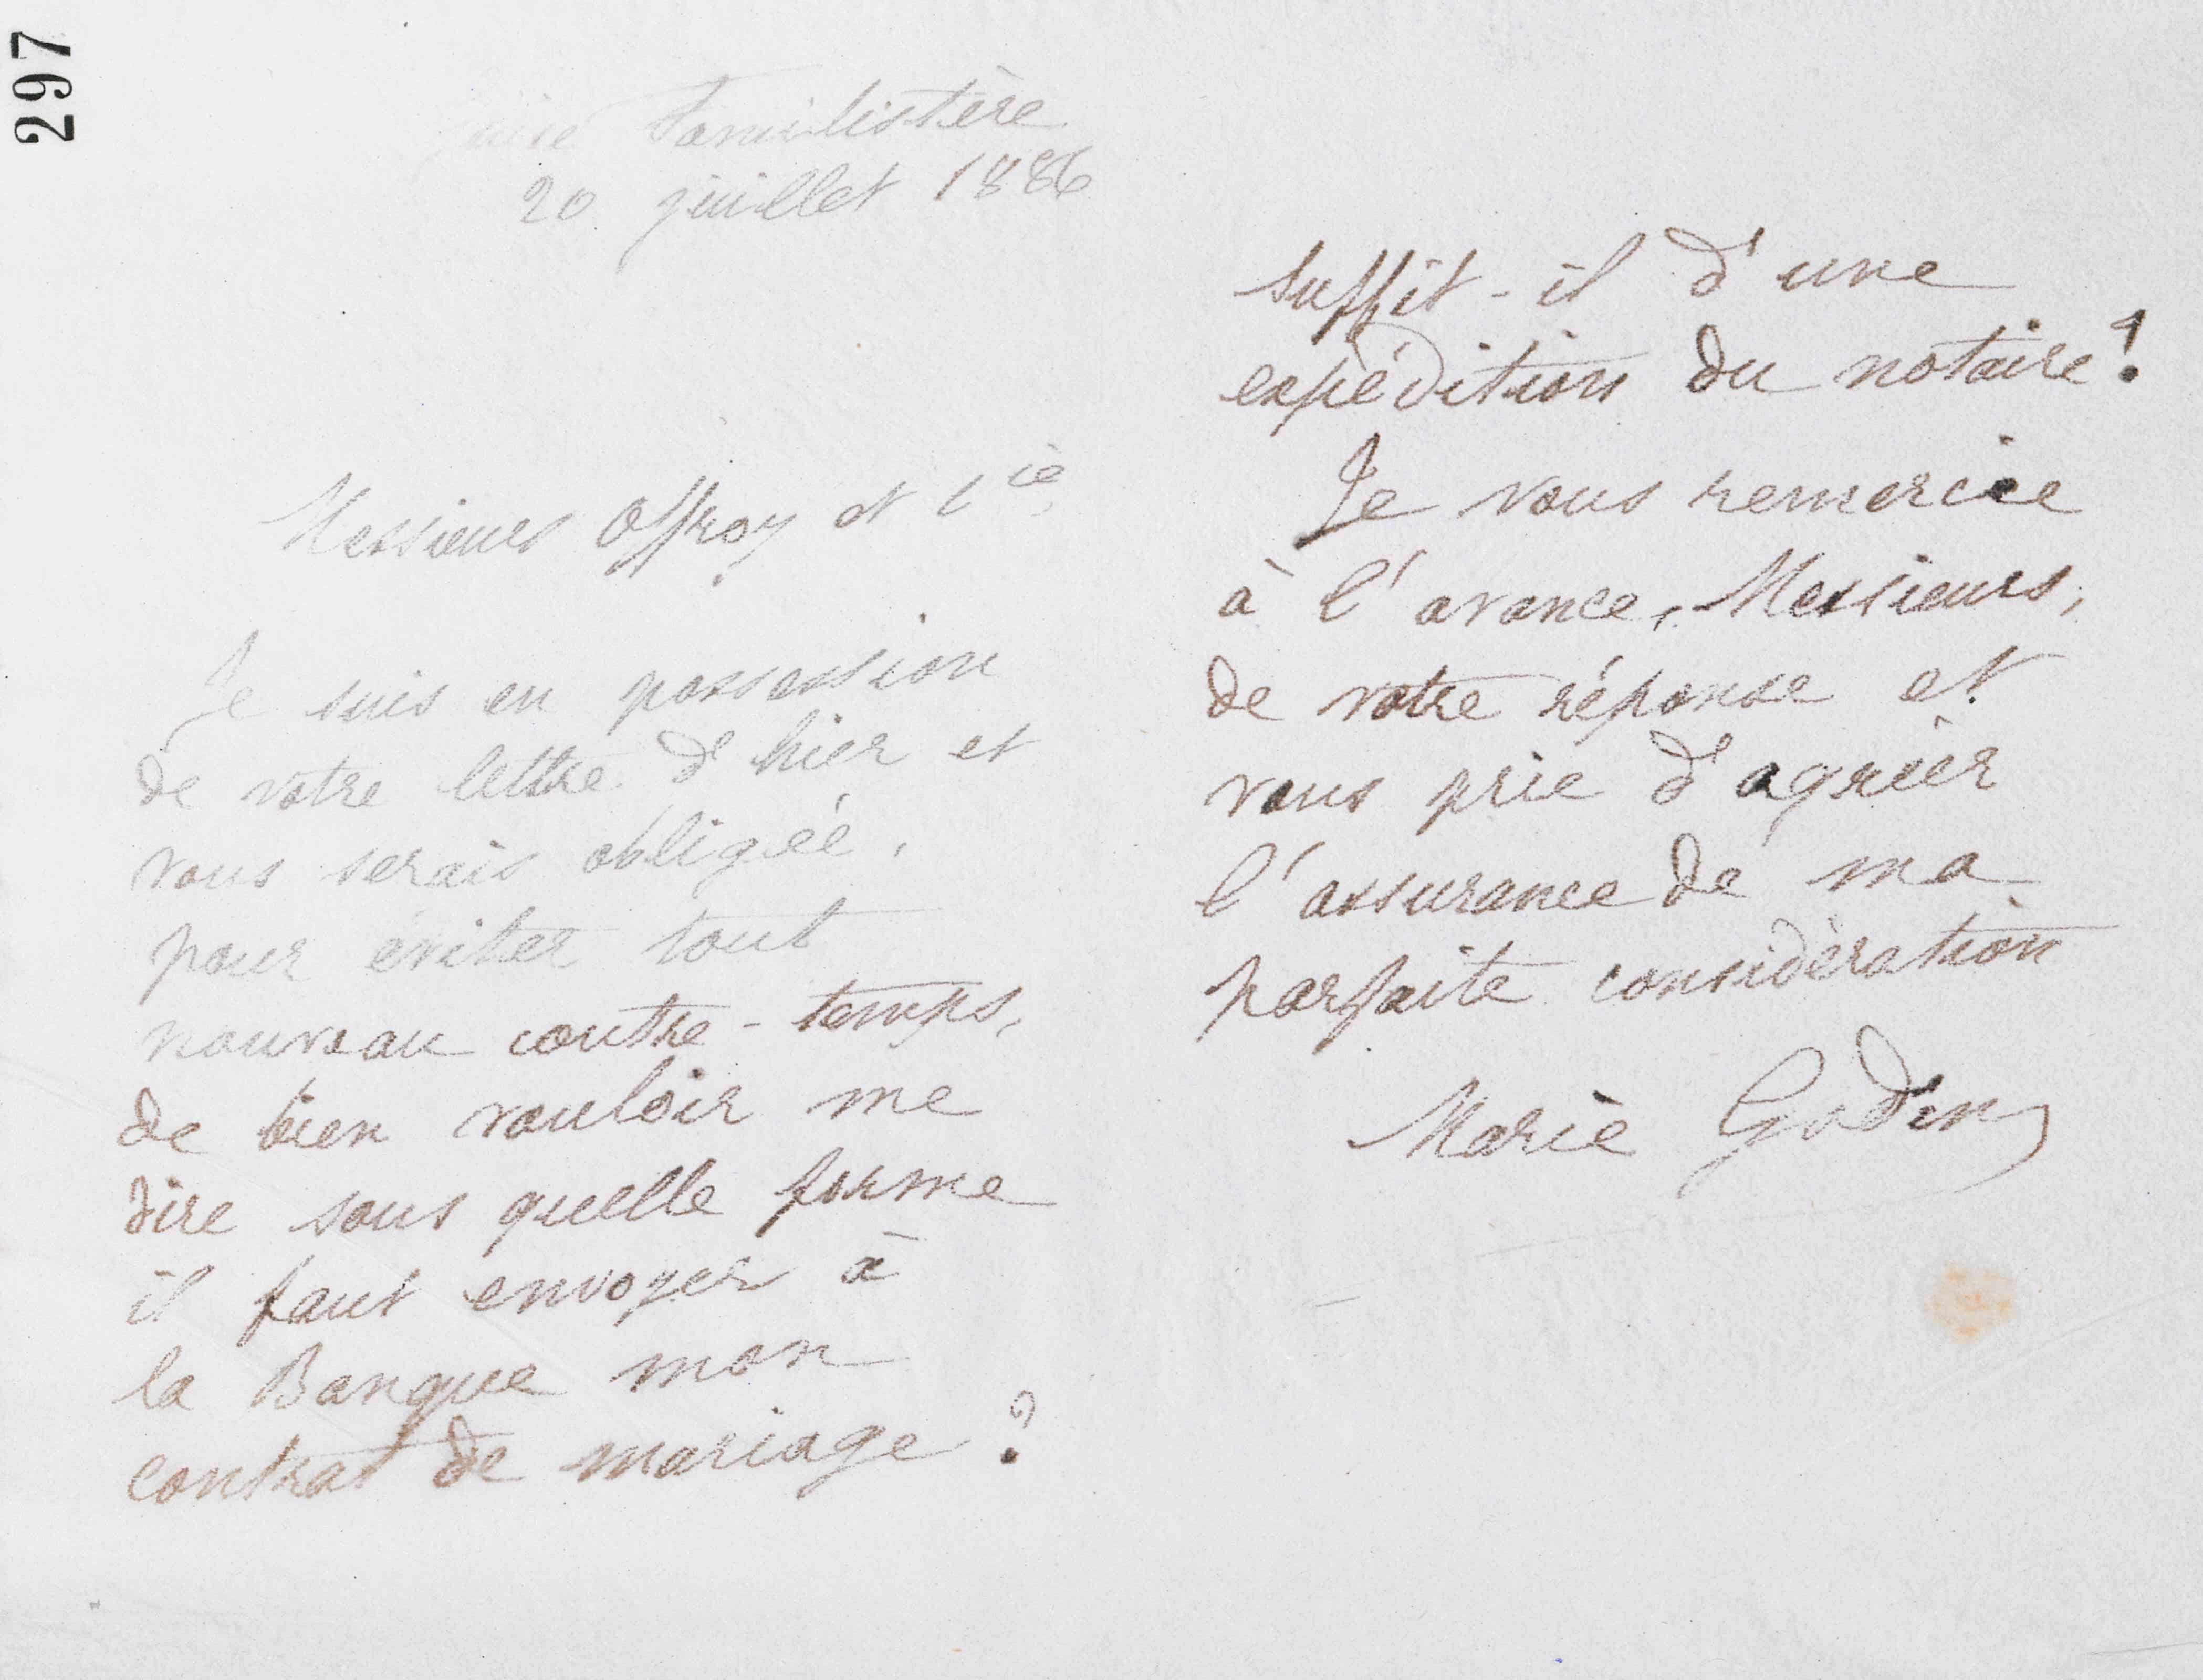 297
Guise Familistère
20 juillet 1886
Messieurs Offroy et Cie,
Je suis en possession
de votre lettre d'hier et
vous serais obligée,
pour éviter tout
nouveau contre-temps,
de bien vouloir me
dire sous quelle forme
il faut envoyer à
la Banque mon
contrat de mariage ?
suffit-il d'une
expédition du notaire ?
Je vous remercie
à l'avance, Messieurs,
de votre réponse et
vous prie d'agréer
l'assurance de ma
parfaite considération
Marie Godin